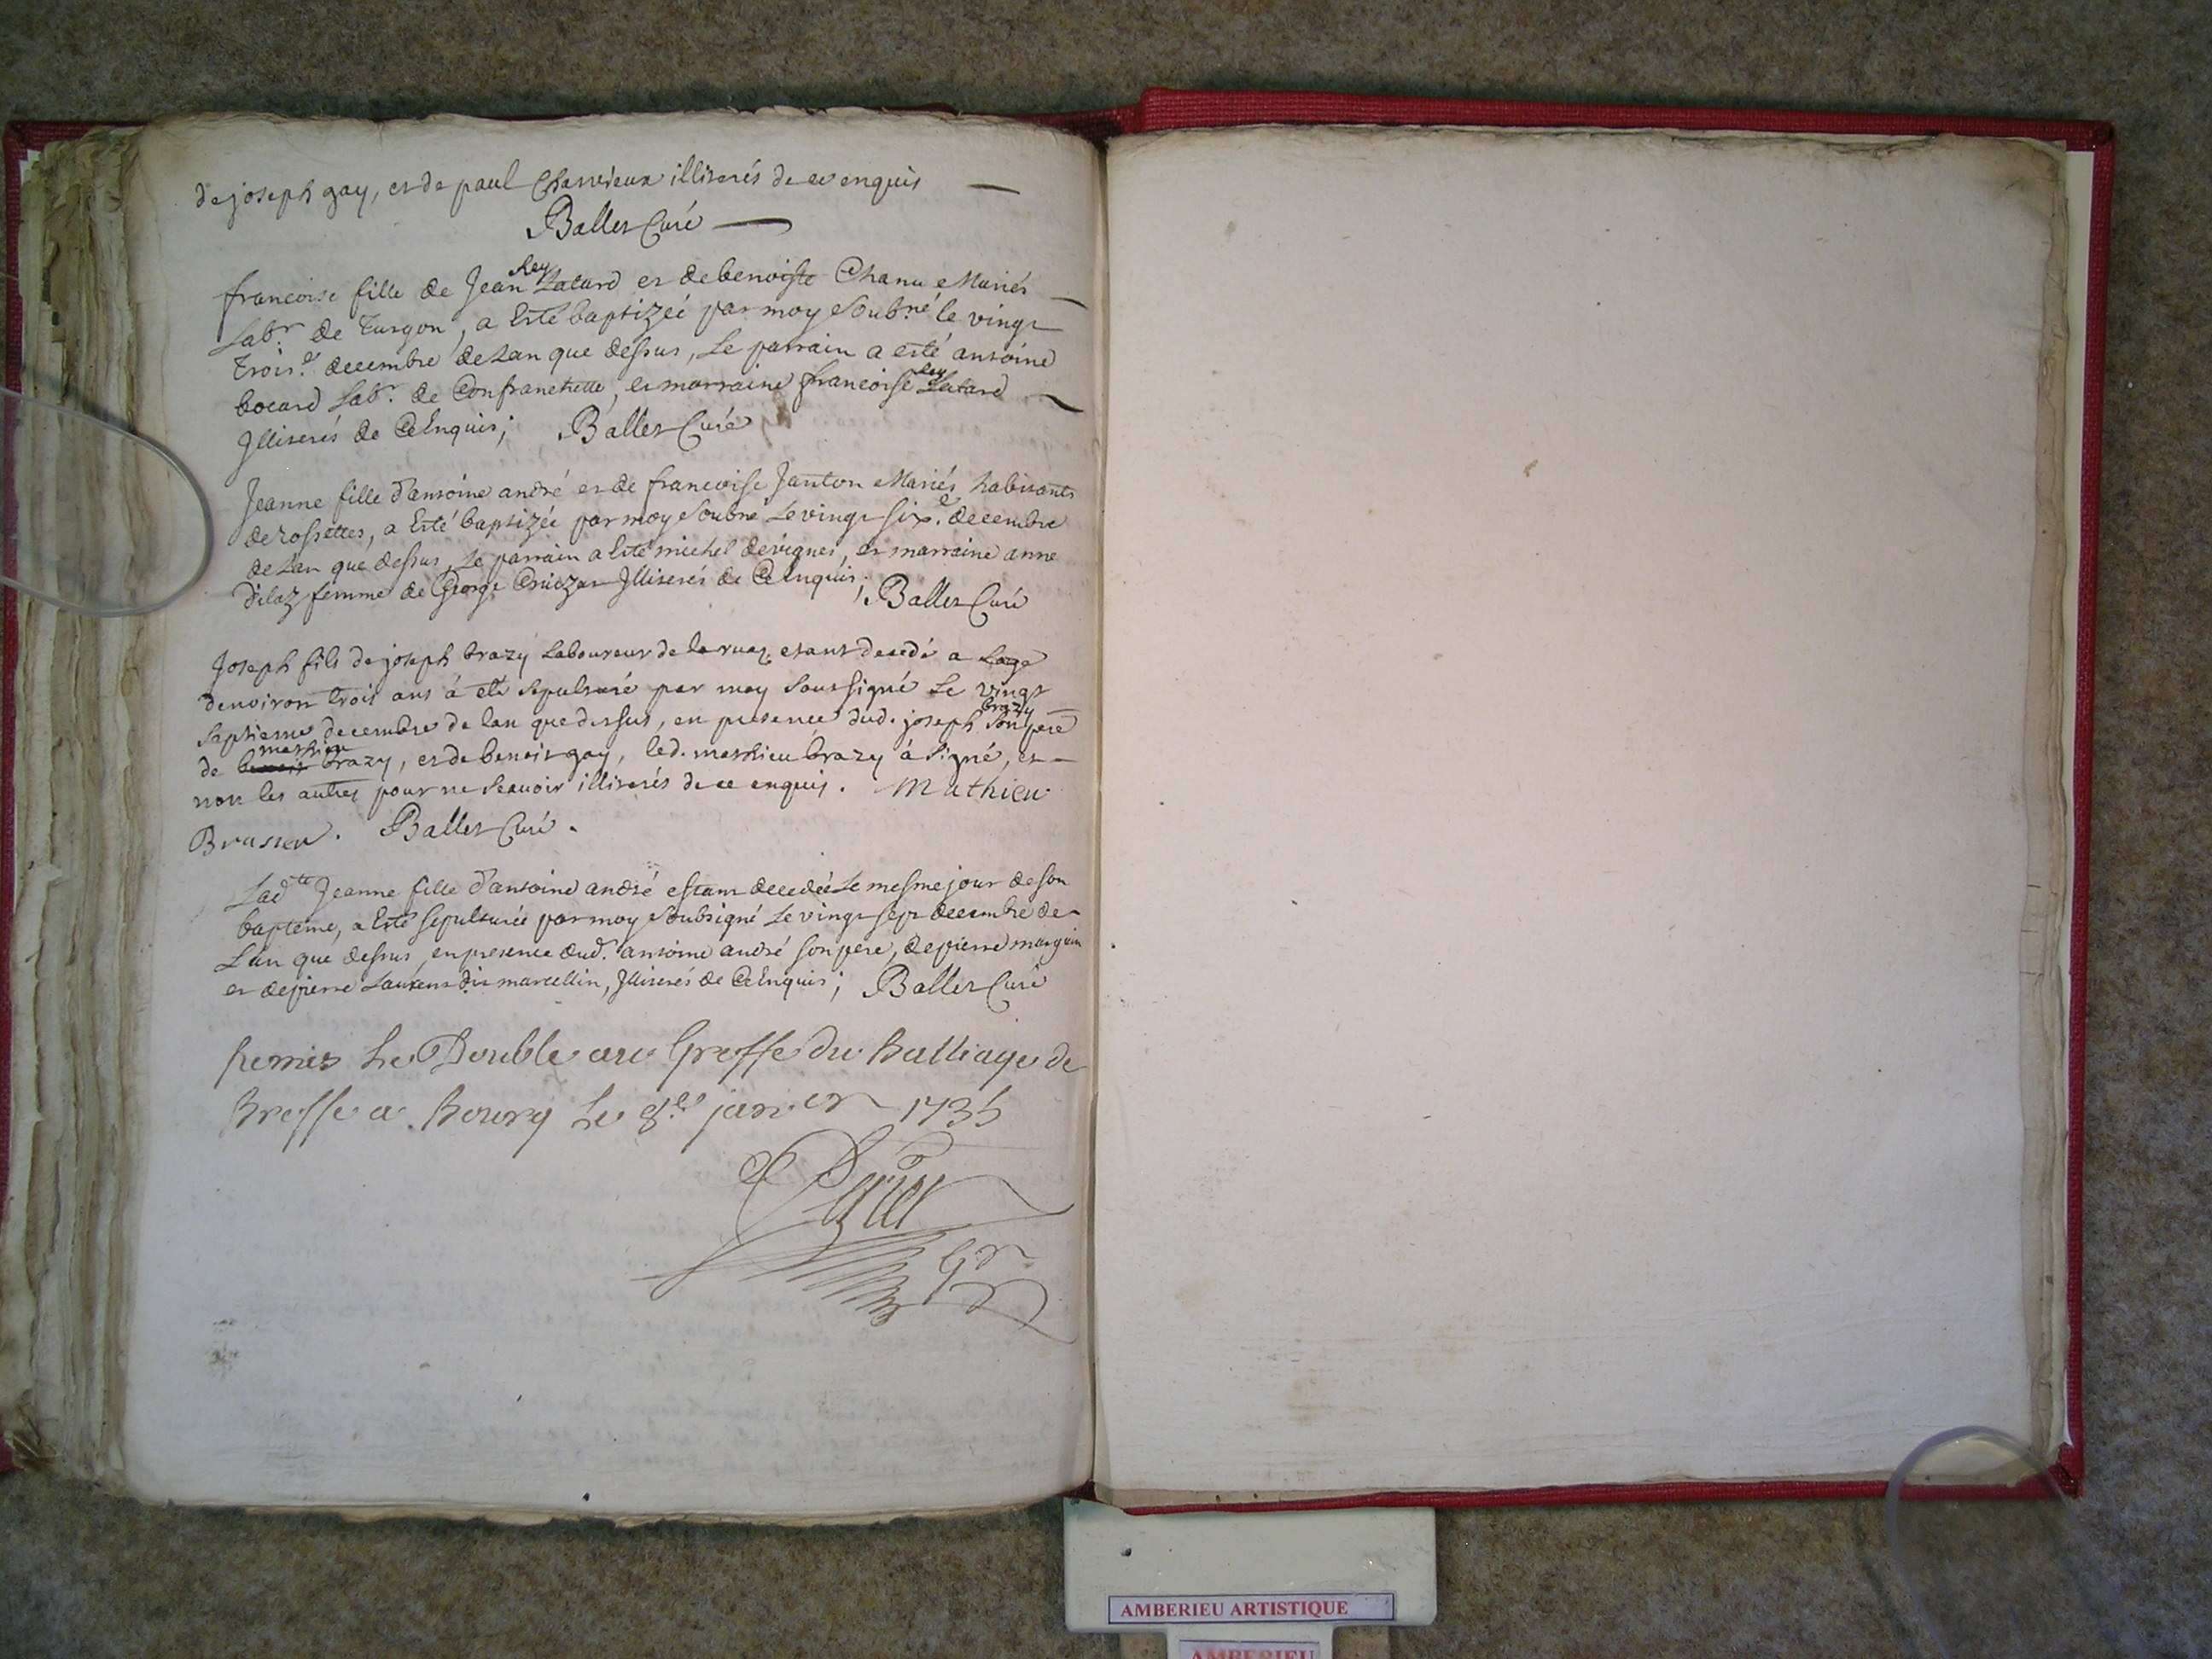 de joseph gay, et de paul Charvieux illiterés de ce enquis
Ballet Curé
Rey
francoise fille de Jean Latard et de benoiste Chanu Mariés
Labr. de Turgon, a Esté baptizeé par moy Soubné le vingt
Trois.e decembre de Lan que dessus, Le parrain a esté antoine
Rey
bocard Labr. de Confranchette, et marraine francoise Latard
Jlliterés de Ce Enquis; Ballet Curé
Jeanne fille d'antoine andré et de francoise Janton Mariés habitants
de rossettes, a Esté baptizée par moy Soubné Le vingt six.e decembre
de Lan que dessus, Le parrain a Esté michel devignes, et marraine anne
delaz femme de George Jlliterés de Ce Enquis; Ballet Curé
Joseph fils de joseph brazy Laboureur de la ruaz etant decedé a Lage
denviron trois ans à eté sepulturé par moy soussigné Le vingt
brazy
septieme decembre de lan que dessus, en presence dud. joseph son pere
mathieu
de benoit brazy, et de benoit gay, led. mathieu brazy à signé, et
non les autres pour ne scauoir illiterés de ce enquis. Mathieu
Brassier. Ballet Curé.
Ladte Jeanne fille d'antoine andré estant decedeé Le mesme jour de son
bapteme, a Esté sepulturée par moy Soubsigné Le vingt sept decembre de
Lan que dessus, en presence dud. antoine andré son pere, de pierre manguin
et de pierre Laurent dit marcellin, Jlliterés de Ce Enquis; Ballet Curé
Remis Le Double au Greffe du Balliage de
Bresse a Bourg Le 8.e janvier 1735
Gr
AMBERIEU ARTISTIQUE
AMBERIEU